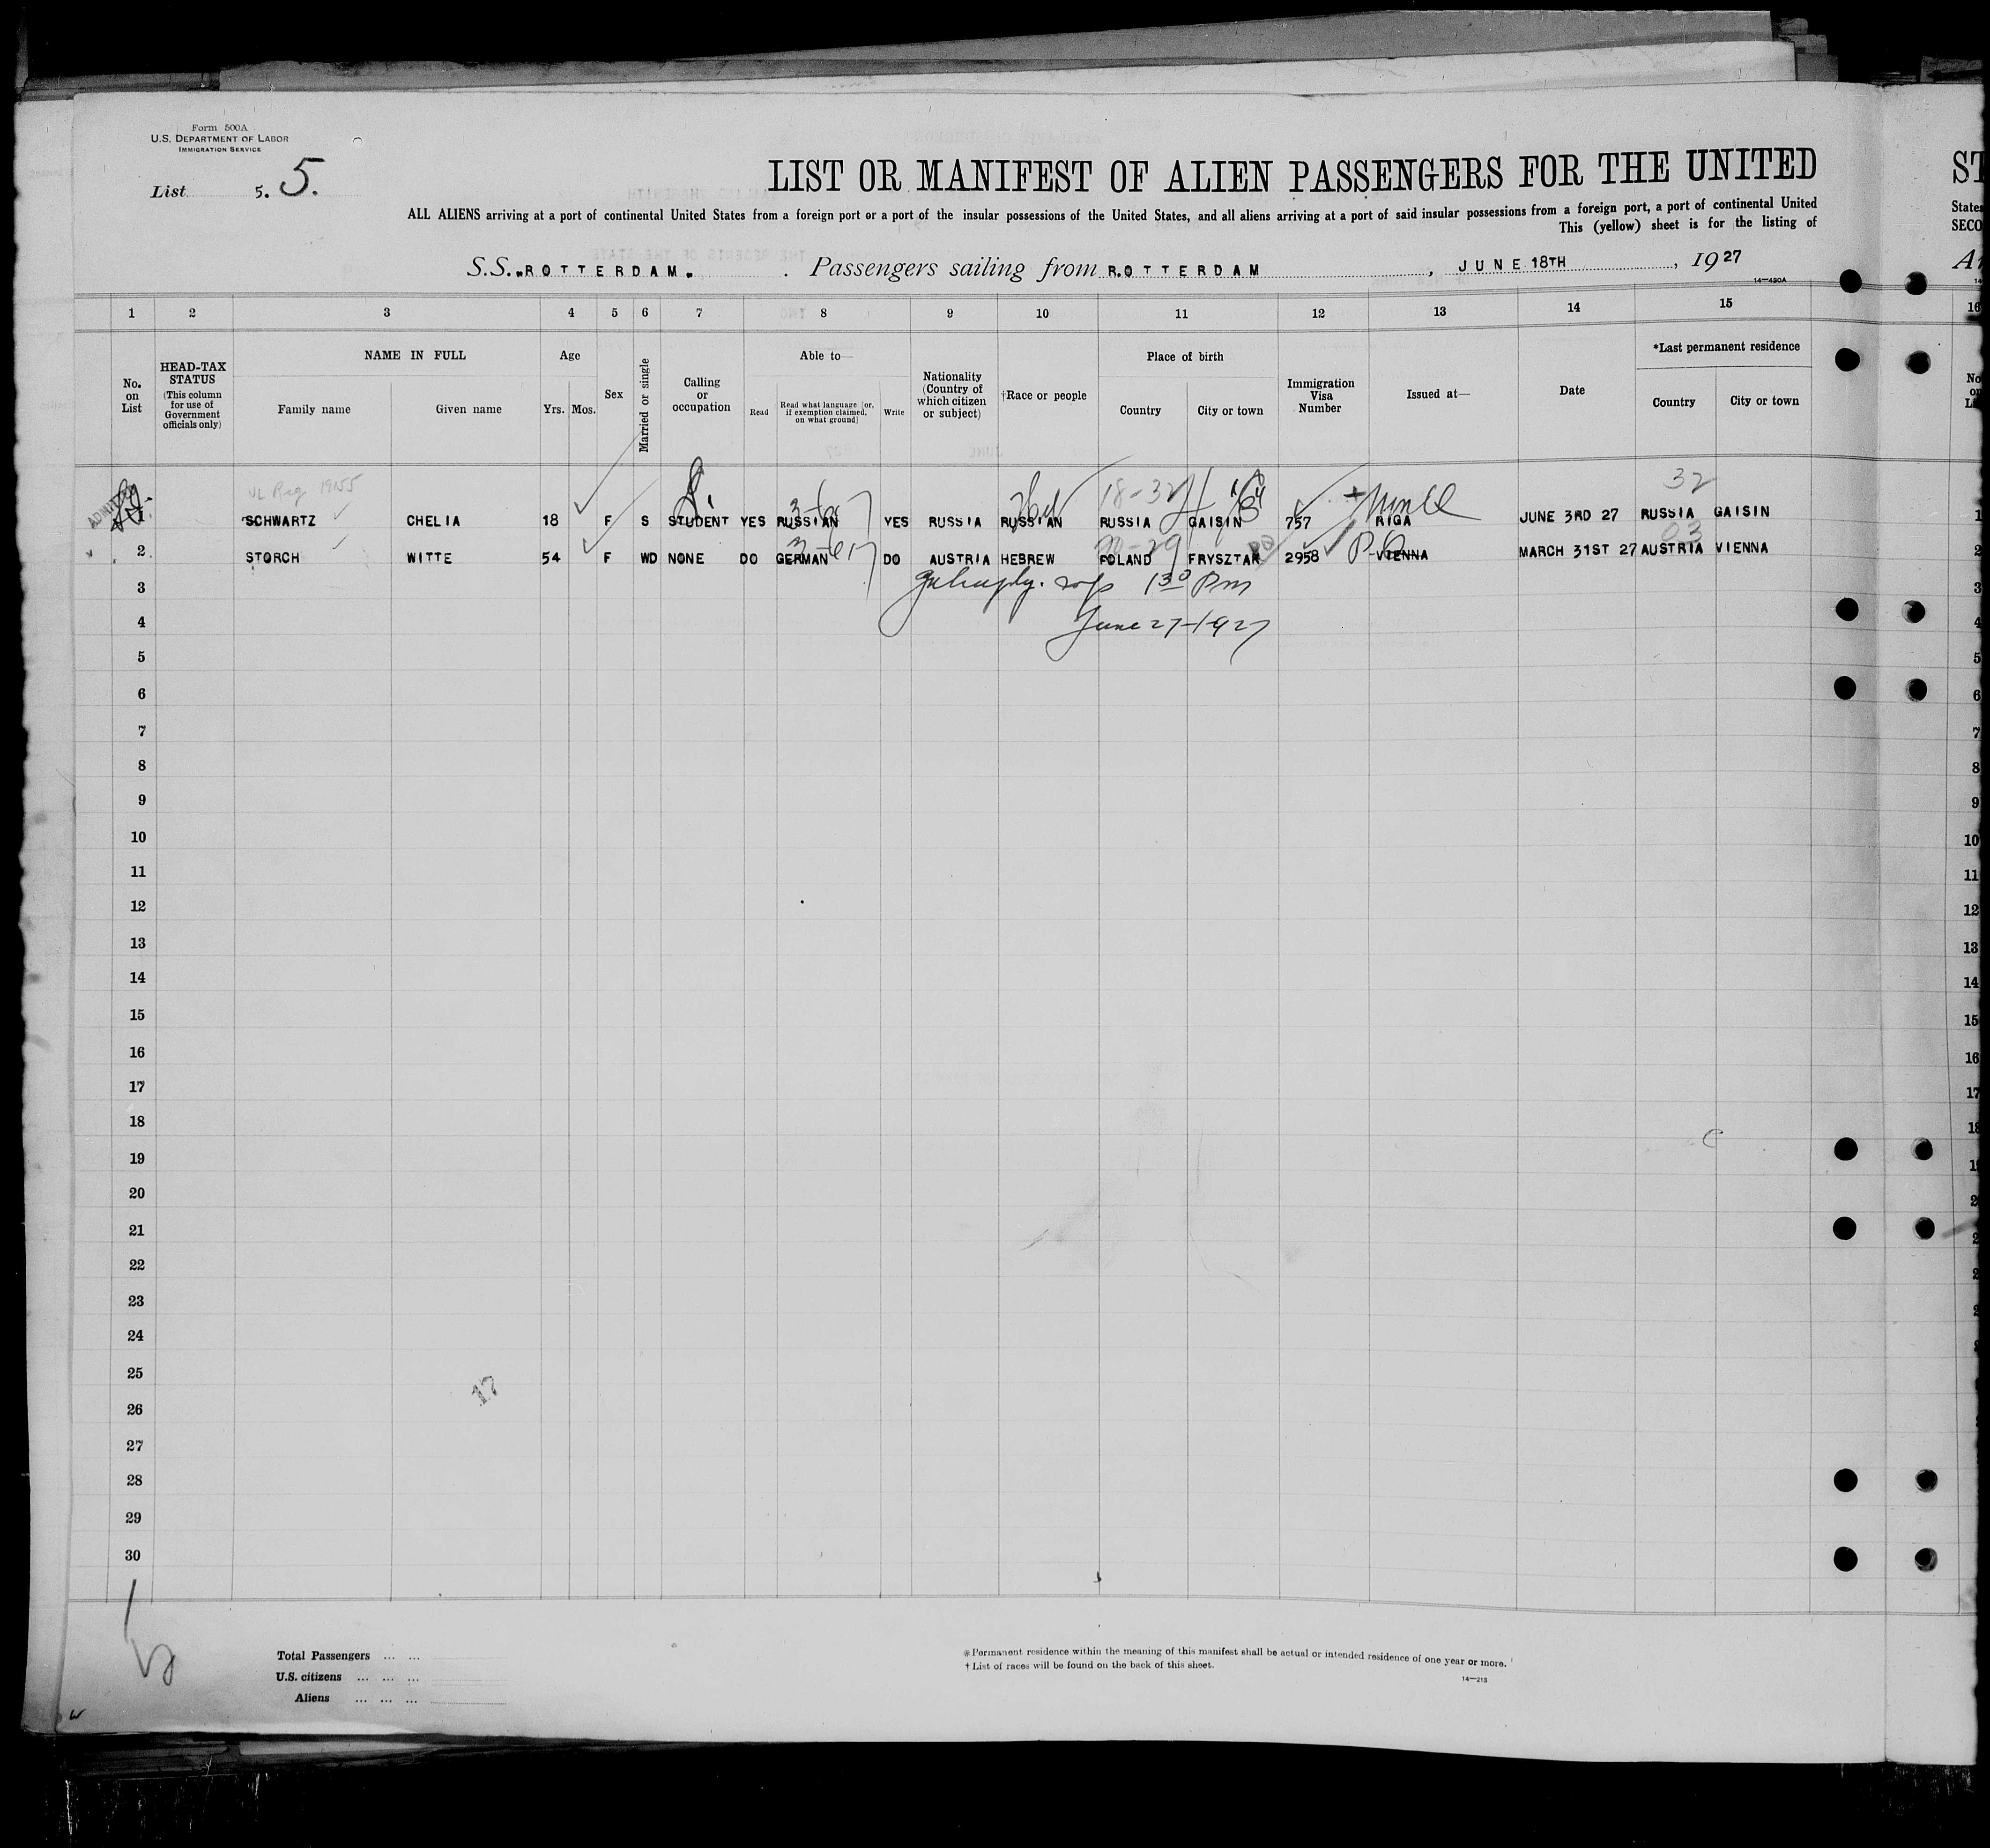 Form 500A
U.S. DEPARTMENT OF LABOR
IMMIGRATION SERVICE
List 5. 5.
LIST OR MANIFEST OF ALIEN PASSENGERS FOR THE UNITED
ALL ALIENS arriving at a port of continental United States from a foreign port or a port of the insular possessions of the United States, and all aliens arriving at a port of said insular possessions from a foreign port, a port of continental United
This (yellow) sheet is for the listing of
S.S. "ROTTERDAM". Passengers sailing from ROTTERDAM, JUNE 18TH, 1927
14—430A
ST
States
SECO
1 2 3 4 5 6 7 8 9 10 11 12 13 14 15 16
No. on List
HEAD-TAX STATUS (This column for use of Government officials only)
NAME IN FULL
Family name Given name
Age
Yrs. Mos.
Sex
Married or single
Calling or occupation
Able to—
Read Read what language (or, if exemption claimed, on what ground) Write
Nationality (Country of which citizen or subject)
†Race or people
Place of birth
Country City or town
Immigration Visa Number
Issued at—
Date
*Last permanent residence
Country City or town
ADMITTED
VL Reg 19155
18-32
32
1 SCHWARTZ CHELIA 18 F S STUDENT YES RUSSIAN YES RUSSIA RUSSIAN RUSSIA GAISIN 757 RIGA JUNE 3RD 27 RUSSIA GAISIN 1
03
2 STORCH WITTE 54 F WD NONE DO GERMAN DO AUSTRIA HEBREW POLAND FRYSZTAK 2958 VIENNA MARCH 31ST 27 AUSTRIA VIENNA 2
3 1 30 Pm 3
4 June 27-1927 4
5 5
6 6
7 7
8 8
9 9
10 10
11 11
12 12
13 13
14 14
15 15
16 16
17 17
18 18
19
20
21
22
23
24
25
17
26
27
28
29
30
Total Passengers ... ...
U.S. citizens ... ... ...
Aliens ... ... ...
* Permanent residence within the meaning of this manifest shall be actual or intended residence of one year or more.
† List of races will be found on the back of this sheet.
14—213